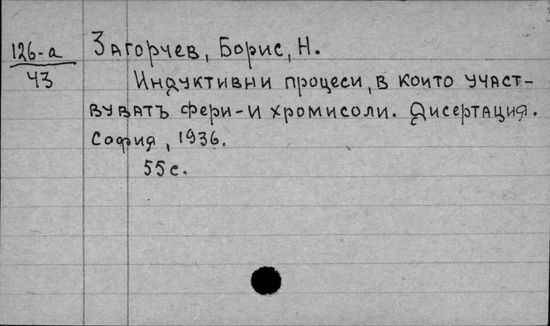 126-а
43
Загорчев, Борис, Н.
Индуктивни процеси, в които участ-
вуватъ фери-и хромисоли. Дисертация.
София, 1936.
55с.